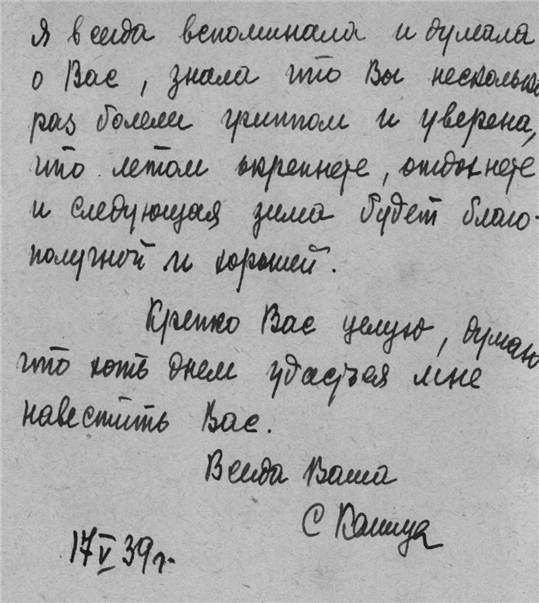 Я всегда вспоминала и думала
о Вас, знала что Вы несколько
раз болели гриппом и уверена,
что летом окрепнете, отдохнете
и следующая зима будет благо-
получной и хорошей.
Крепко Вас целую, думаю
что хоть днем удастъся мне
навестить Вас.
Всегда Ваша
С
17 V 39 г.